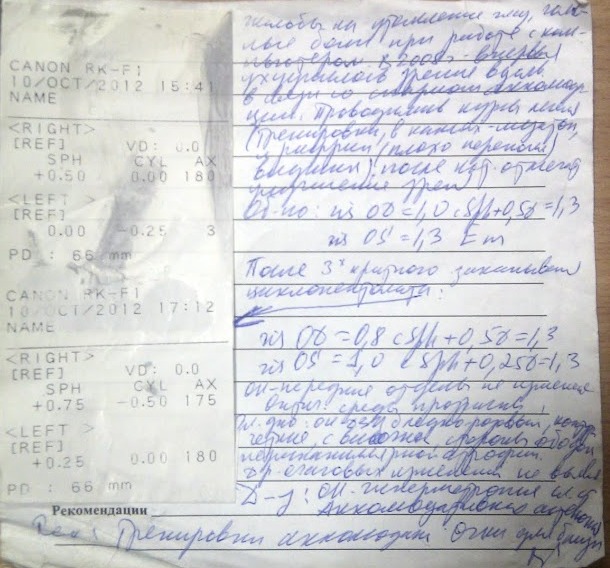 CANON RK-F1
10/OCT/2012 15:41
NAME
<RIGHT>
[REF] VD: 0.0
SPH CYL AX
+0.50 0.00 180
<LEFT>
[REF]
0.00 -0.25 3
PD : 66 mm
CANON RK-F1
10/OCT/2012 17:12
NAME
<RIGHT>
[REF] VD: 0.0
SPH CYL AX
+0.75 -0.50 175
<LEFT>
[REF]
+0.25 0.00 180
PD : 66 mm
жалобы на утомление глаз, голов-
ные боли при работе с ком-
пьютером. впервые
ухудшилось зрение вдаль
в
Проводились курсы лечения
(тренировки, в каплях - мезатон,
плохо переносил
после отмечал
улучшение зрен
OD = 1,0 c sph +0,5D = 1,3
OS = 1,3 Em
После 3х кратного закапывания
циклопентолата:
OD = 0,8 c sph +0,5D = 1,3
OS = 1,0 c sph +0,25D = 1,3
OU - передние отделы не изменены
Оптич. среды прозрачны,
Гл. дно: OU ДЗН бледно-розовый, контуры
четкие, с височной стороны ободок
перипапиллярной атрофии.
очаговых изменений не выявл
D-z: OU - гиперметропия сл. ст
Аккомодативная астенопия
Рекомендации
Тренировки аккомодации Очки для близи